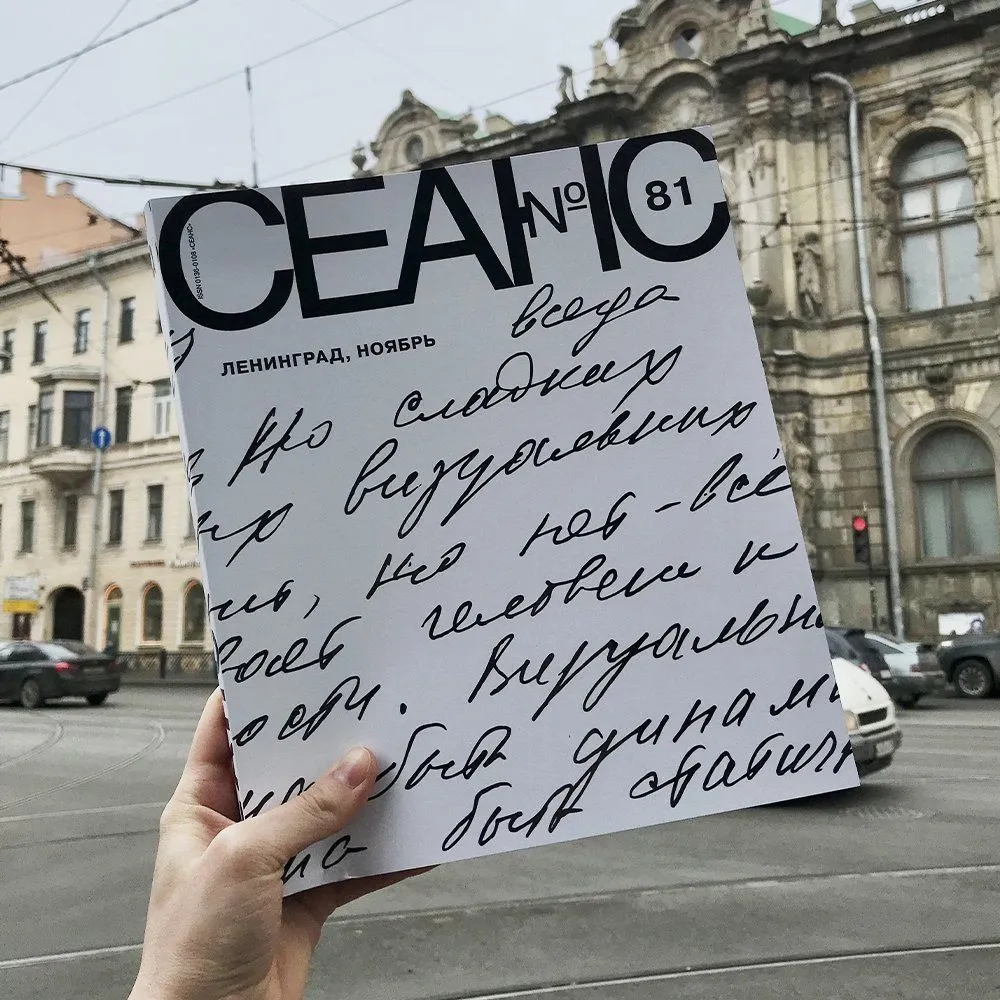 СЕАНС
№ 81
ISSN 0136-0108 «СЕАНС»
ЛЕНИНГРАД, НОЯБРЬ
всегда
Но сладких
их визуальных
ить, но нет - всё
воет человек и
ости. Визуальн
быть динами
на быть статичн